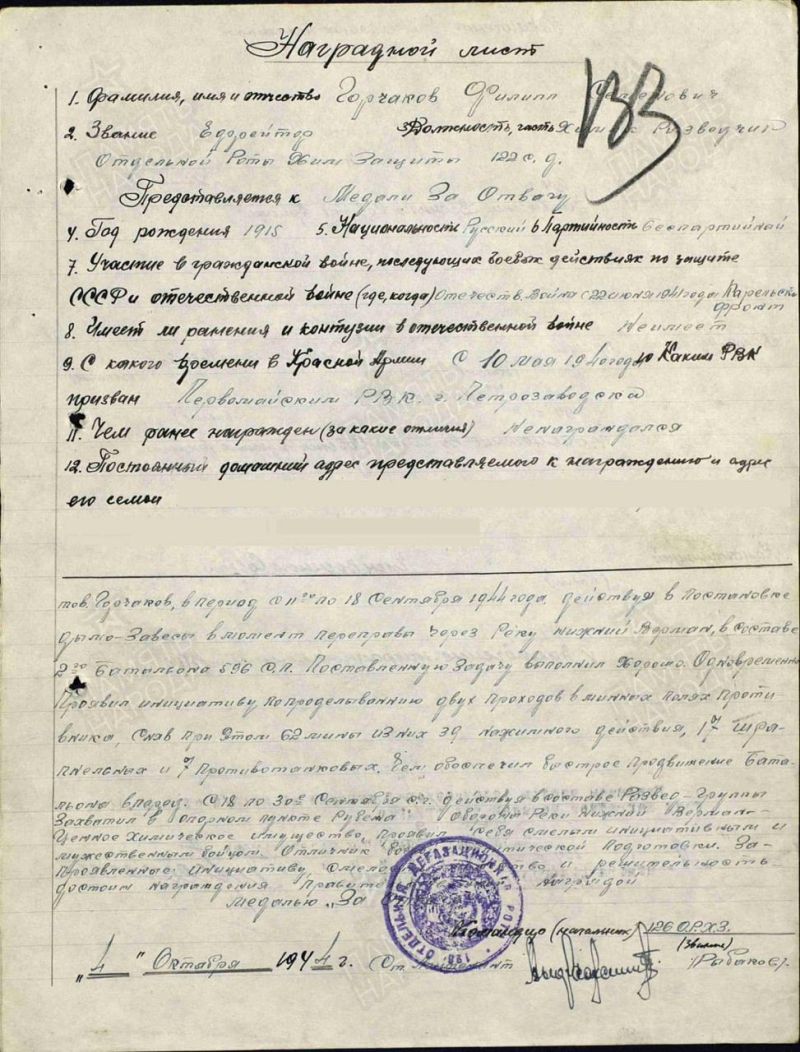 Наградной лист
133
1. Фамилия, имя и отчество Горчаков Филипп
2. Звание Ефрейтор 3. Должность, часть Хим Разведчик
Отдельной Роты Хим Защиты 122 с. д.
Представляется к Медали За Отвагу
4. Год рождения 1915 5. Национальность Русский 6 Партийность Беспартийный
7. Участие в гражданской войне, последующих боевых действиях по защите
СССР и отечественной войне (где, когда) Отечеств. Война с 22 июня 1941 года Карельский
фронт
8. Имеет ли ранения и контузии в отечественной войне Неимеет
9. С какого времени в Красной Армии с 10 мая 194 года 10 Каким РВК
призван Первомайским РВК. г. Петрозаводска
11. Чем ранее награжден (за какие отличия) Ненаграждался
12. Постоянный домашний адрес представляемого к награждению и адрес
его семьи
тов. Горчаков, в период с 11го по 18 Сентября 1944 года действуя в Постановке
дымо-Завесы в момент переправы через Реку Нижний Верман, в Составе
2го Батальона 596 с.п. Поставленную Задачу выполнил Хорошо. Одновременно
Проявил инициативу, по проделыванию двух проходов в минных полях проти
вника, сняв при этом 62 мины из них 39 нажимного действия, 17 Шра-
пнельных и 7 Противотанковых. Чем обеспечил быстрое продвижение Бата-
льона вперед. С 18 по 30е Сентября с.г. действуя в составе Развед-Группы
Захватил в опорном пункте Обороны Реки Нижний Верман-
Ценное Химическое имущество, проявил себя смелым инициативным и
мужественным бойцом. Отличник Подготовки. За-
Проявленные инициативу, и решительность
достоин награждения Наградой
Медалью "За
ОТДЕЛЬНАЯ ДЕГАЗАЦИОННАЯ РОТА
Командир (начальник) 126 ОРХЗ.
(Звание)
"4" Октября 1944 г. Ст. Лейтенант (Рыбаков).